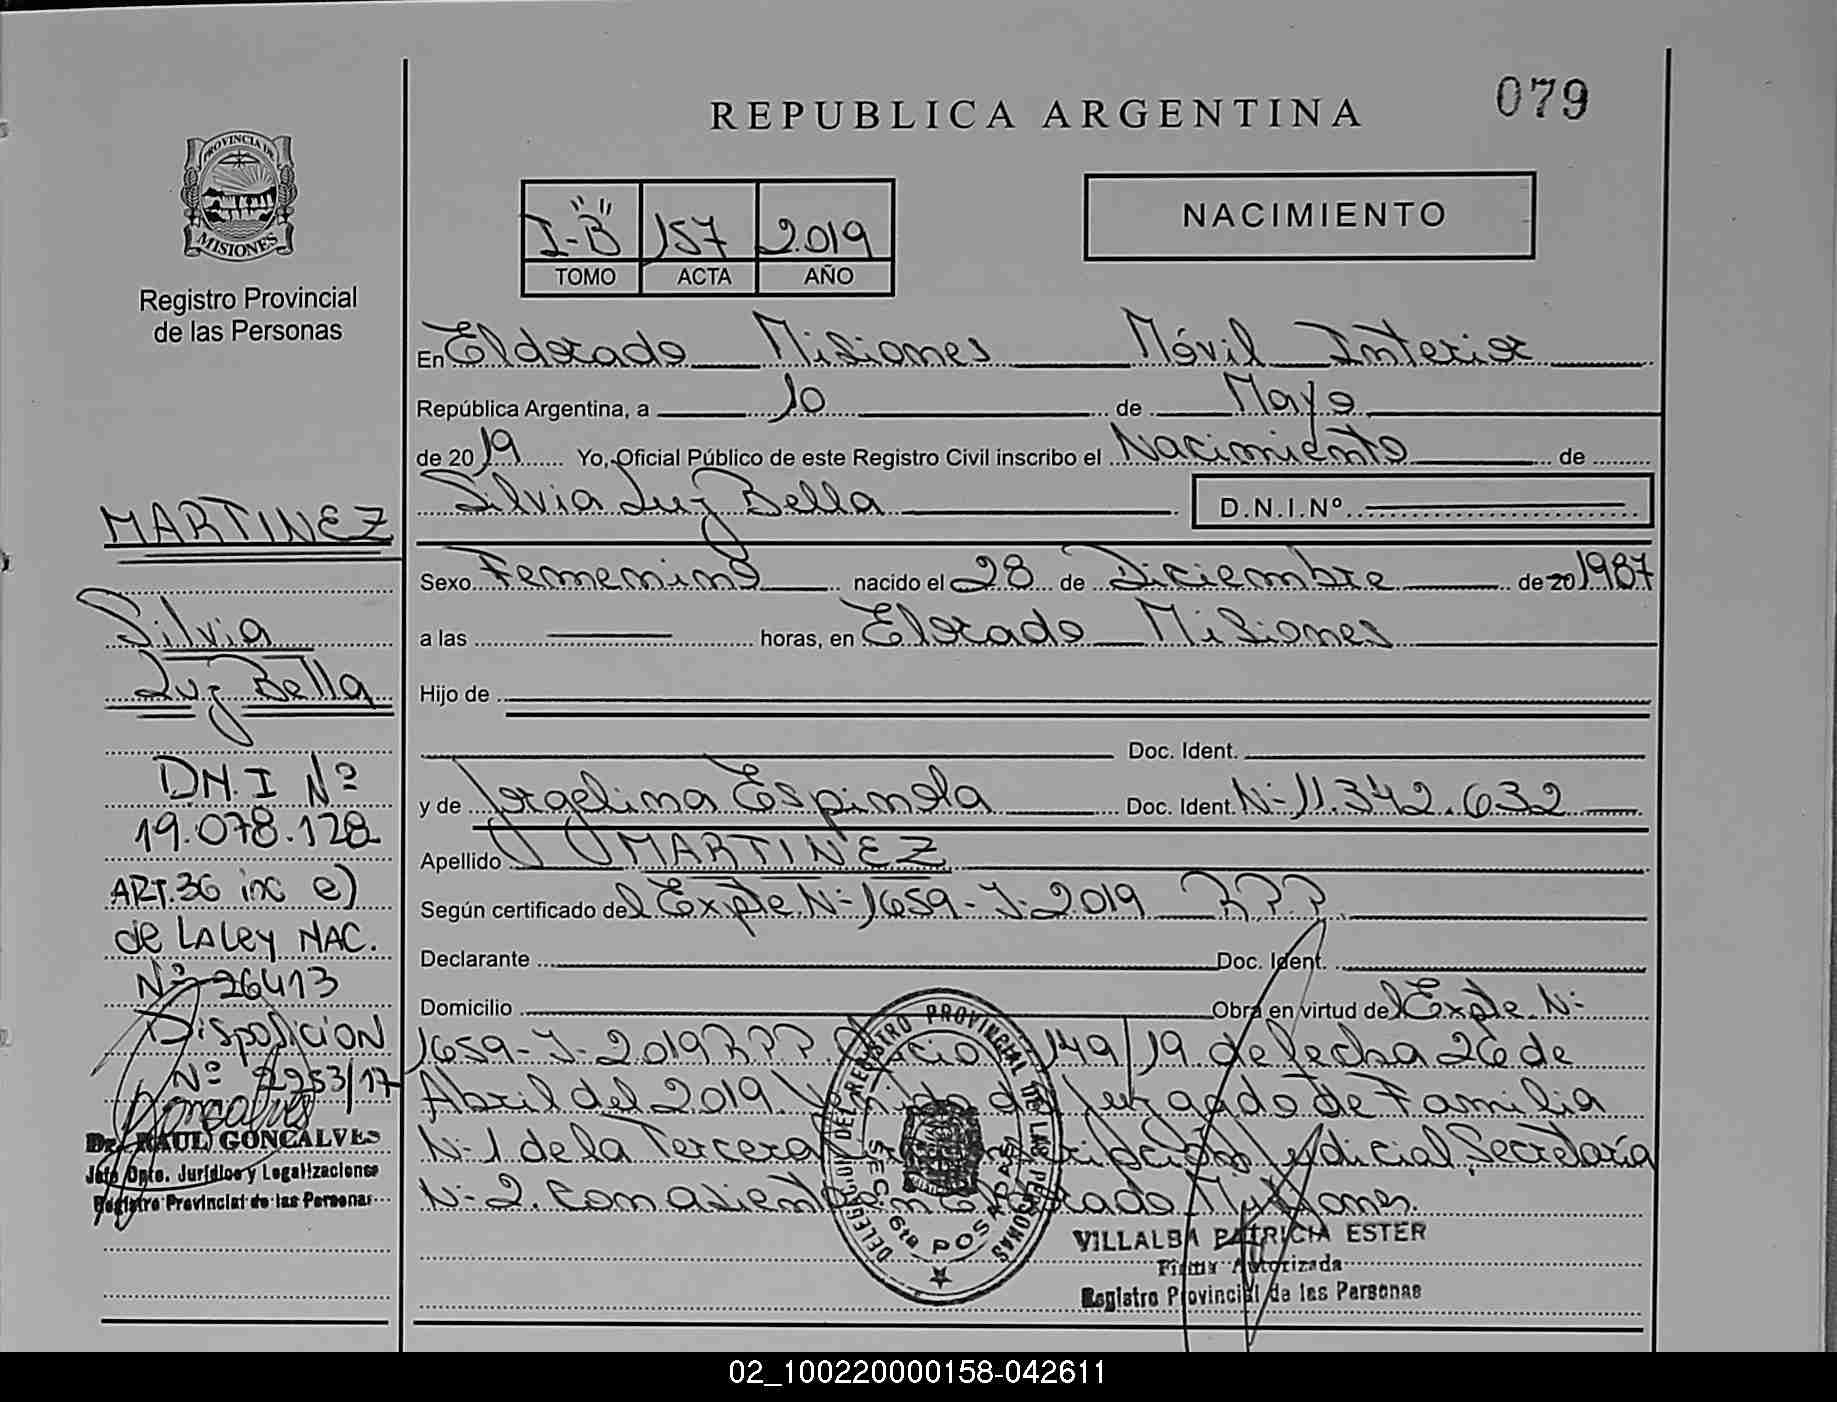 REPUBLICA ARGENTINA
079
PROVINCIA DE
MISIONES
Registro Provincial
de las Personas
I-"B" 157 2019
TOMO ACTA AÑO
NACIMIENTO
En Eldorado Misiones Móvil Interior
República Argentina, a 10 de Mayo
de 2019 Yo, Oficial Público de este Registro Civil inscribo el Nacimiento de
Silvia Luz Bella D.N.I.Nº
Sexo Femenino nacido el 28 de Diciembre de 20 1987
a las horas, en Elorado Misiones
Hijo de
Doc. Ident.
y de Jorgelina Espinola Doc. Ident. Nº 11.342.632
Apellido MARTINEZ
Según certificado del Expte Nº 1659-J-2019 RPP.
Declarante Doc. Ident.
Domicilio Obra en virtud del Expte. Nº
1659-J-2019 RPP. 149/19 de fecha 26 de
Abril del 2019. Juzgado de Familia
Nº 1 de la Tercera Judicial, Secretaría
Nº 2. Con asiento en Misiones.
VILLALBA PATRICIA ESTER
Firma Autorizada
Registro Provincial de las Personas
DELEGACION DEL REGISTRO PROVINCIAL DE LAS PERSONAS
SECC. 6ta POSADAS
MARTINEZ
Silvia
Luz Bella
D.N.I Nº
19.078.128
ART.36 inc e)
de LA Ley NAC.
Nº 26413
Disposición
Nº 2253/17
Goncalves
Dr. RAUL GONCALVES
Jefe Dpto. Jurídico y Legalizaciones
Registro Provincial de las Personas
02_100220000158-042611